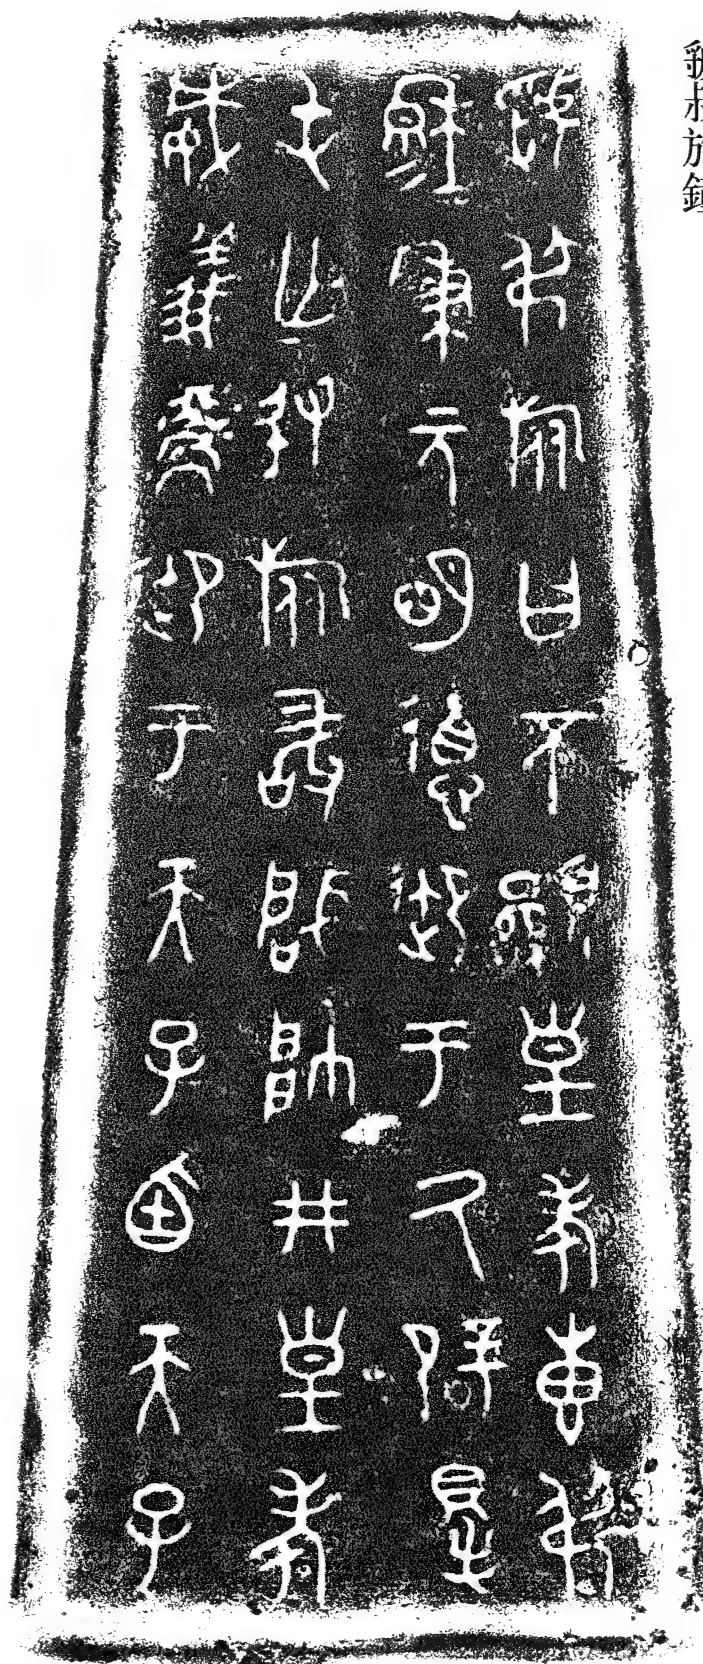 虢叔旅鐘
虢弔旅曰不顯皇考叀弔
穆=秉元明德御于氒辟得
屯亡敃旅敢啟帥井皇考
威義御于天子迺天子